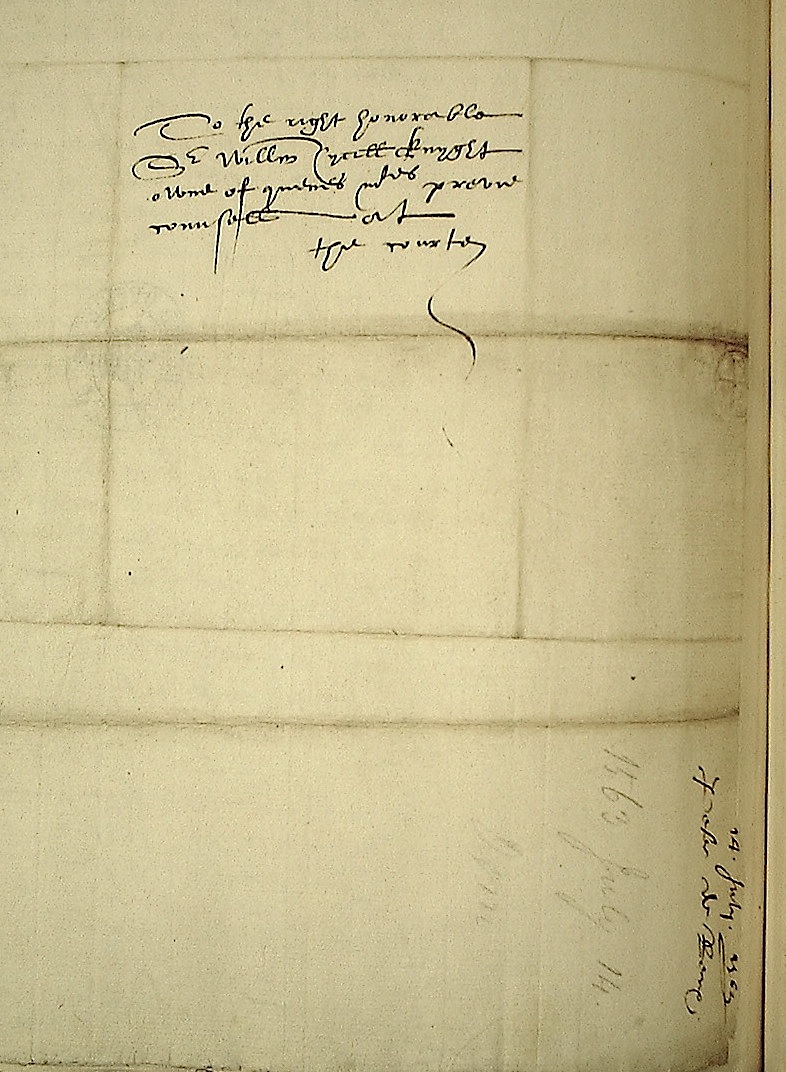 To the right honorable
Sr Willm Cycill knyght
owne of quenes mtes previe
counsell at
the courte
14. July. 1563
1563 July 14.